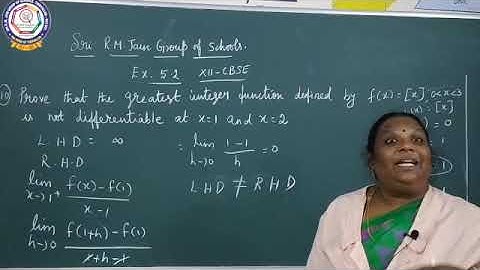 Sri R M Jain Group of Schools.
Ex. 5.2 XII-CBSE
10 Prove that the greatest integer function defined by f(x) = [x], 0<x<3
is not differentiable at x=1 and x=2
L H D = ∞
R.H.D
lim x→1⁺ f(x) - f(1) / x - 1
lim h→0 f(1+h) - f(1) / 1+h-1
= lim h→0 1-1 / h = 0
L H D ≠ R H D
= [x]
= 0
1